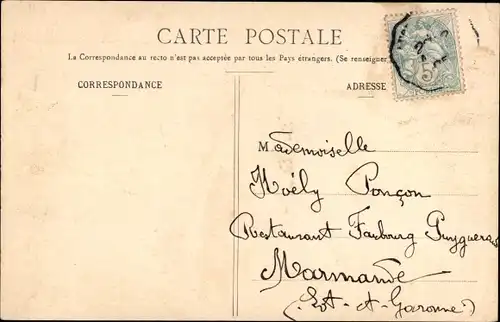 CARTE POSTALE
La Correspondance au recto n'est pas acceptée par tous les Pays étrangers. (Se renseigner
CORRESPONDANCE
ADRESSE
Mademoiselle
Noëly Ponçon
Restaurant Faubourg
Marmande
(Lot-et-Garonne)